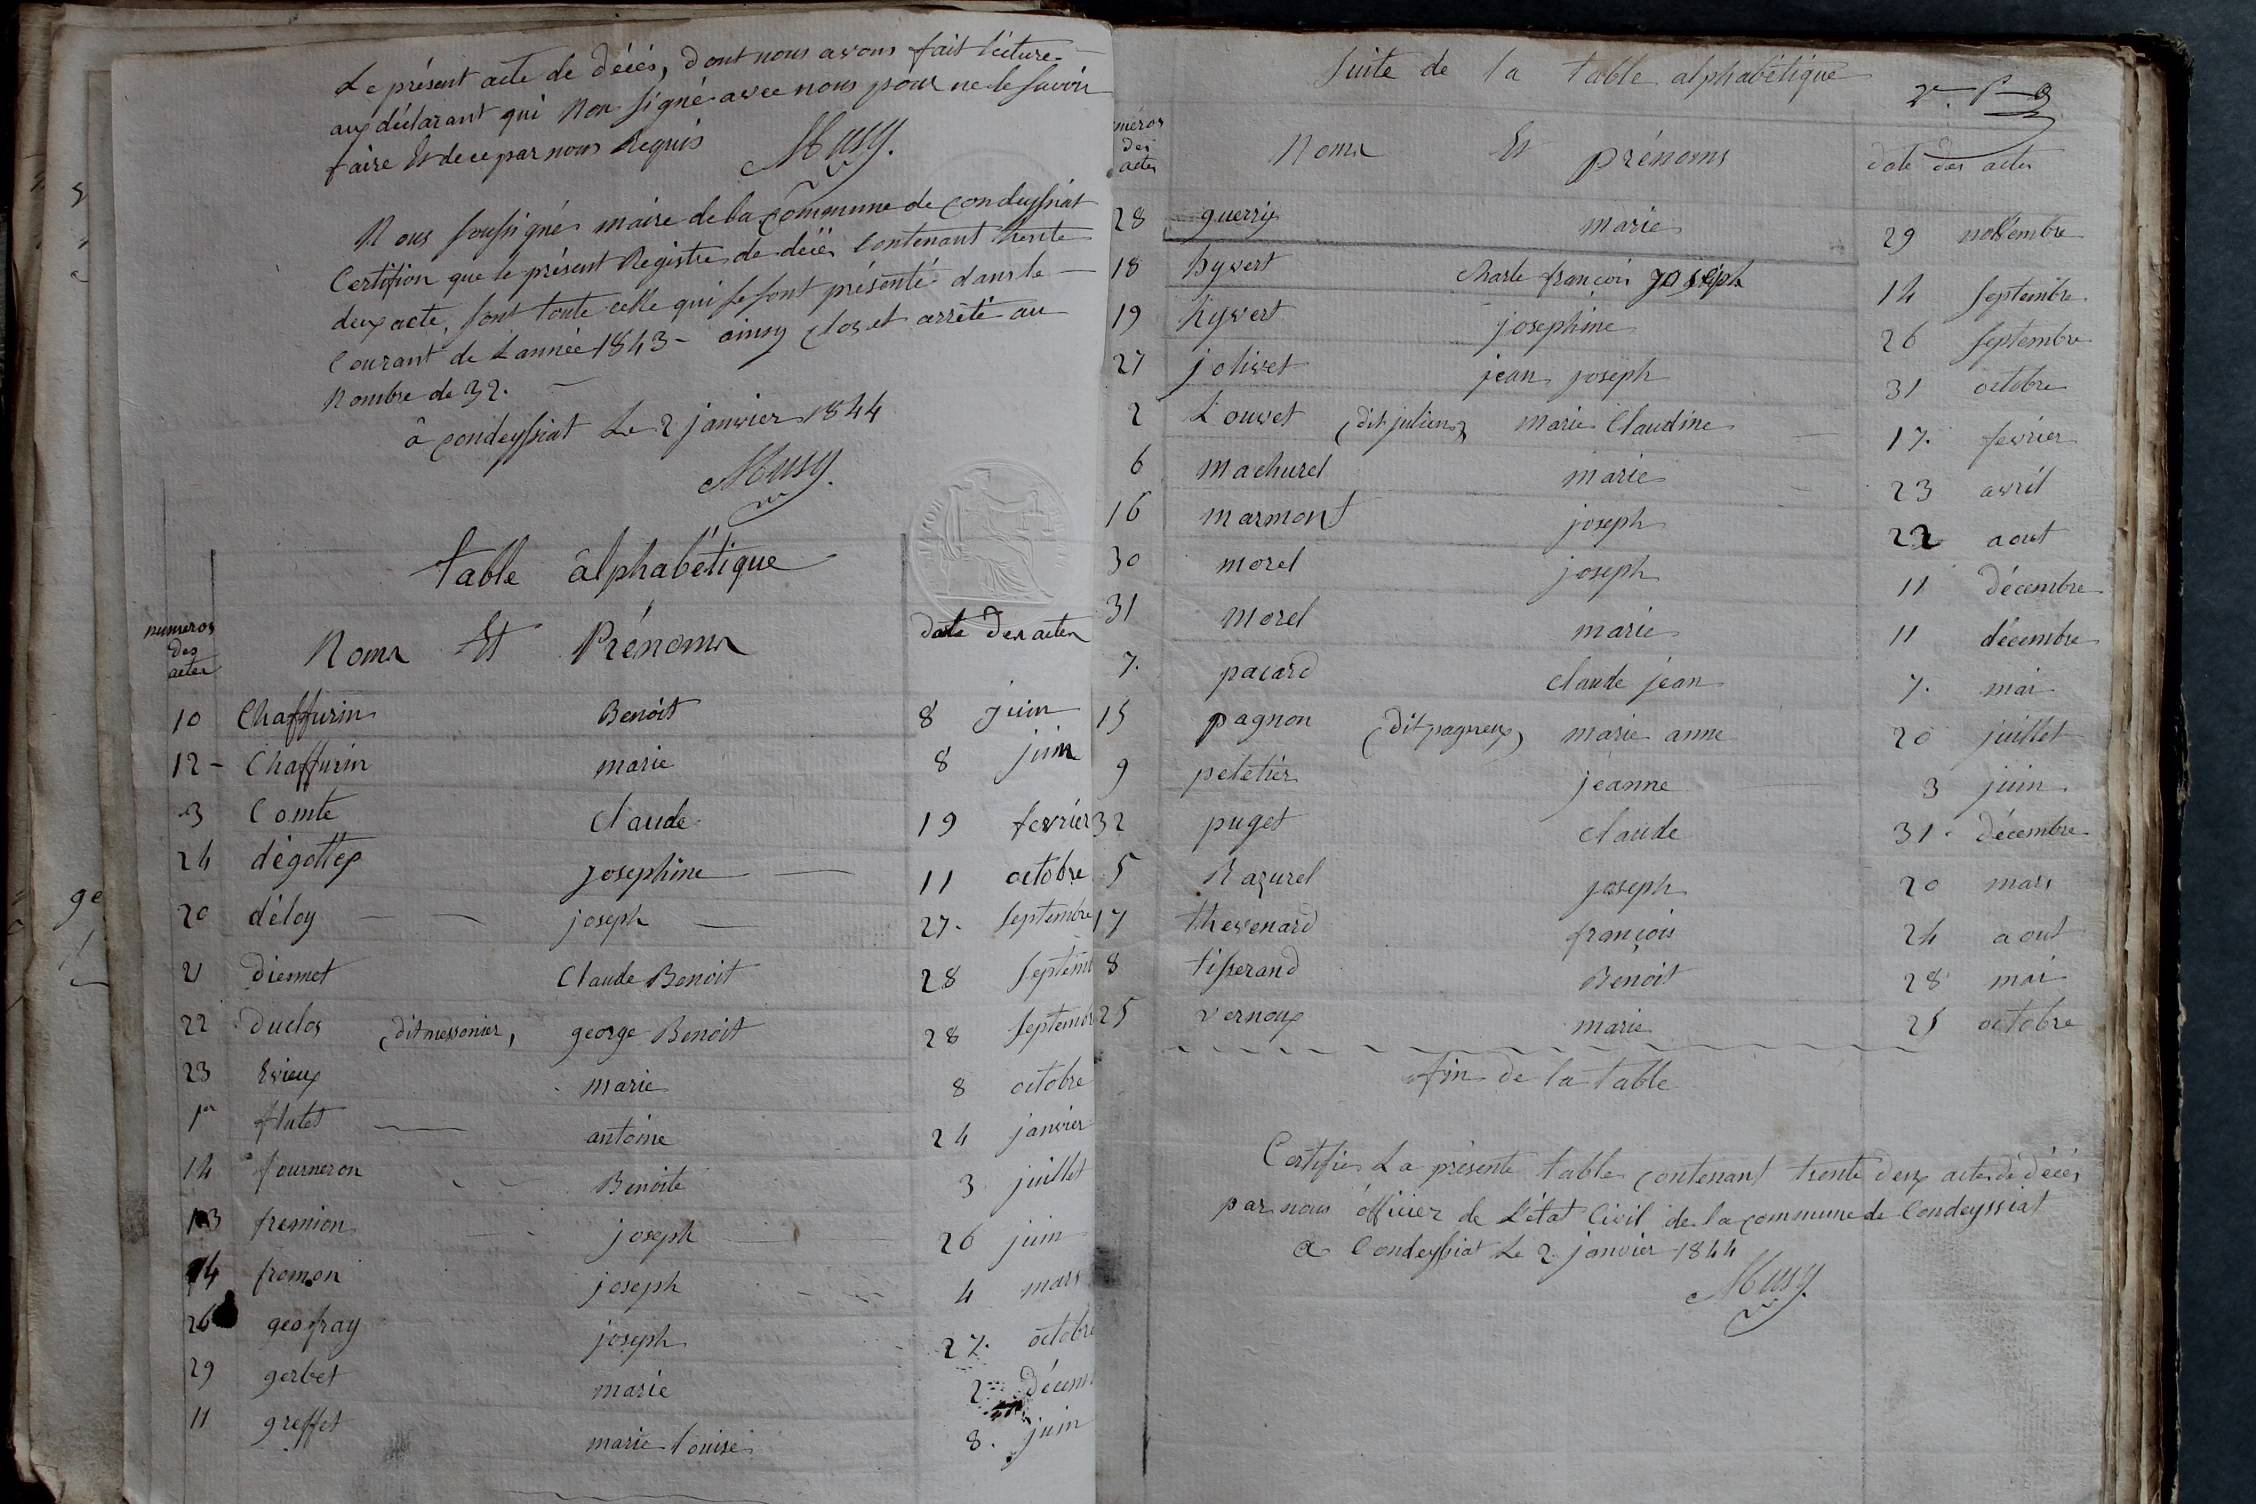 Le présent acte de décès, dont nous avons fait lecture
aux déclarant qui non signé avec nous pour ne le savoir
faire Et de ce par nous Requis
Musy.
Nous soussignés maire de la commune de condeyssiat
Certifion que le présent Registre de décès Contenant trente
deux acte, sont toute celle qui se sont présenté dans le
Courant de L'année 1843 - ainsy clos et arrêté au
Nombre de 32.
à condeyssiat Le 2 janvier 1844
Musy.
table âlphabétique
numeros des actes Noms Et Prénoms date des actes
10 Chaffurin Benoit 8 juin
12 - Chaffurin marie 8 juin
3 Comte claude 19 fevrier
24 dégottex josephine 11 octobre
20 déloy joseph 27. septembre
21 diennet Claude Benoit 28 septem
22 duclos (dit messonier) george Benoit 28 septemb
23 Evieux marie 8 octobre
1er flutet antoine 24 janvier
14 fourneron Benoite 3 juillet
13 fremion joseph 26 juin
4 fromon joseph 4 mars
26 geofray joseph 27. octobre
29 gerbet marie 2 décem
11 greffet marie louise 8. juin
Suite de la table alphabétique
méros des actes Noms Et prénoms date des actes
28 guerrix marie 29 novembre
18 hyvert charle françois joseph 14 septembre
19 hyvert josephine 26 septembre
27 jolivet jean joseph 31 octobre
2 Louvet (dit julien) marie Claudine 17. fevrier
6 machurel marie 23 avril
16 marmont joseph 22 aout
30 morel joseph 11 décembre
31 morel marie 11 décembre
7. pacard claude jean 7. mai
15 pagnon (dit pagneux) marie anne 20 juillet
9 peletier jeanne 3 juin
32 puget claude 31. décembre
5 Razurel joseph 20 mars
17 thevenard françois 24 aout
8 tisserand Benoit 28 mai
25 vernoux marie 25 octobre
fin de la table
Certifies La présente table contenant trente deux actes de décès
par nous officier de L'état Civil de la commune de Condeyssiat
a Condeyssiat Le 2 janvier 1844
Musy.